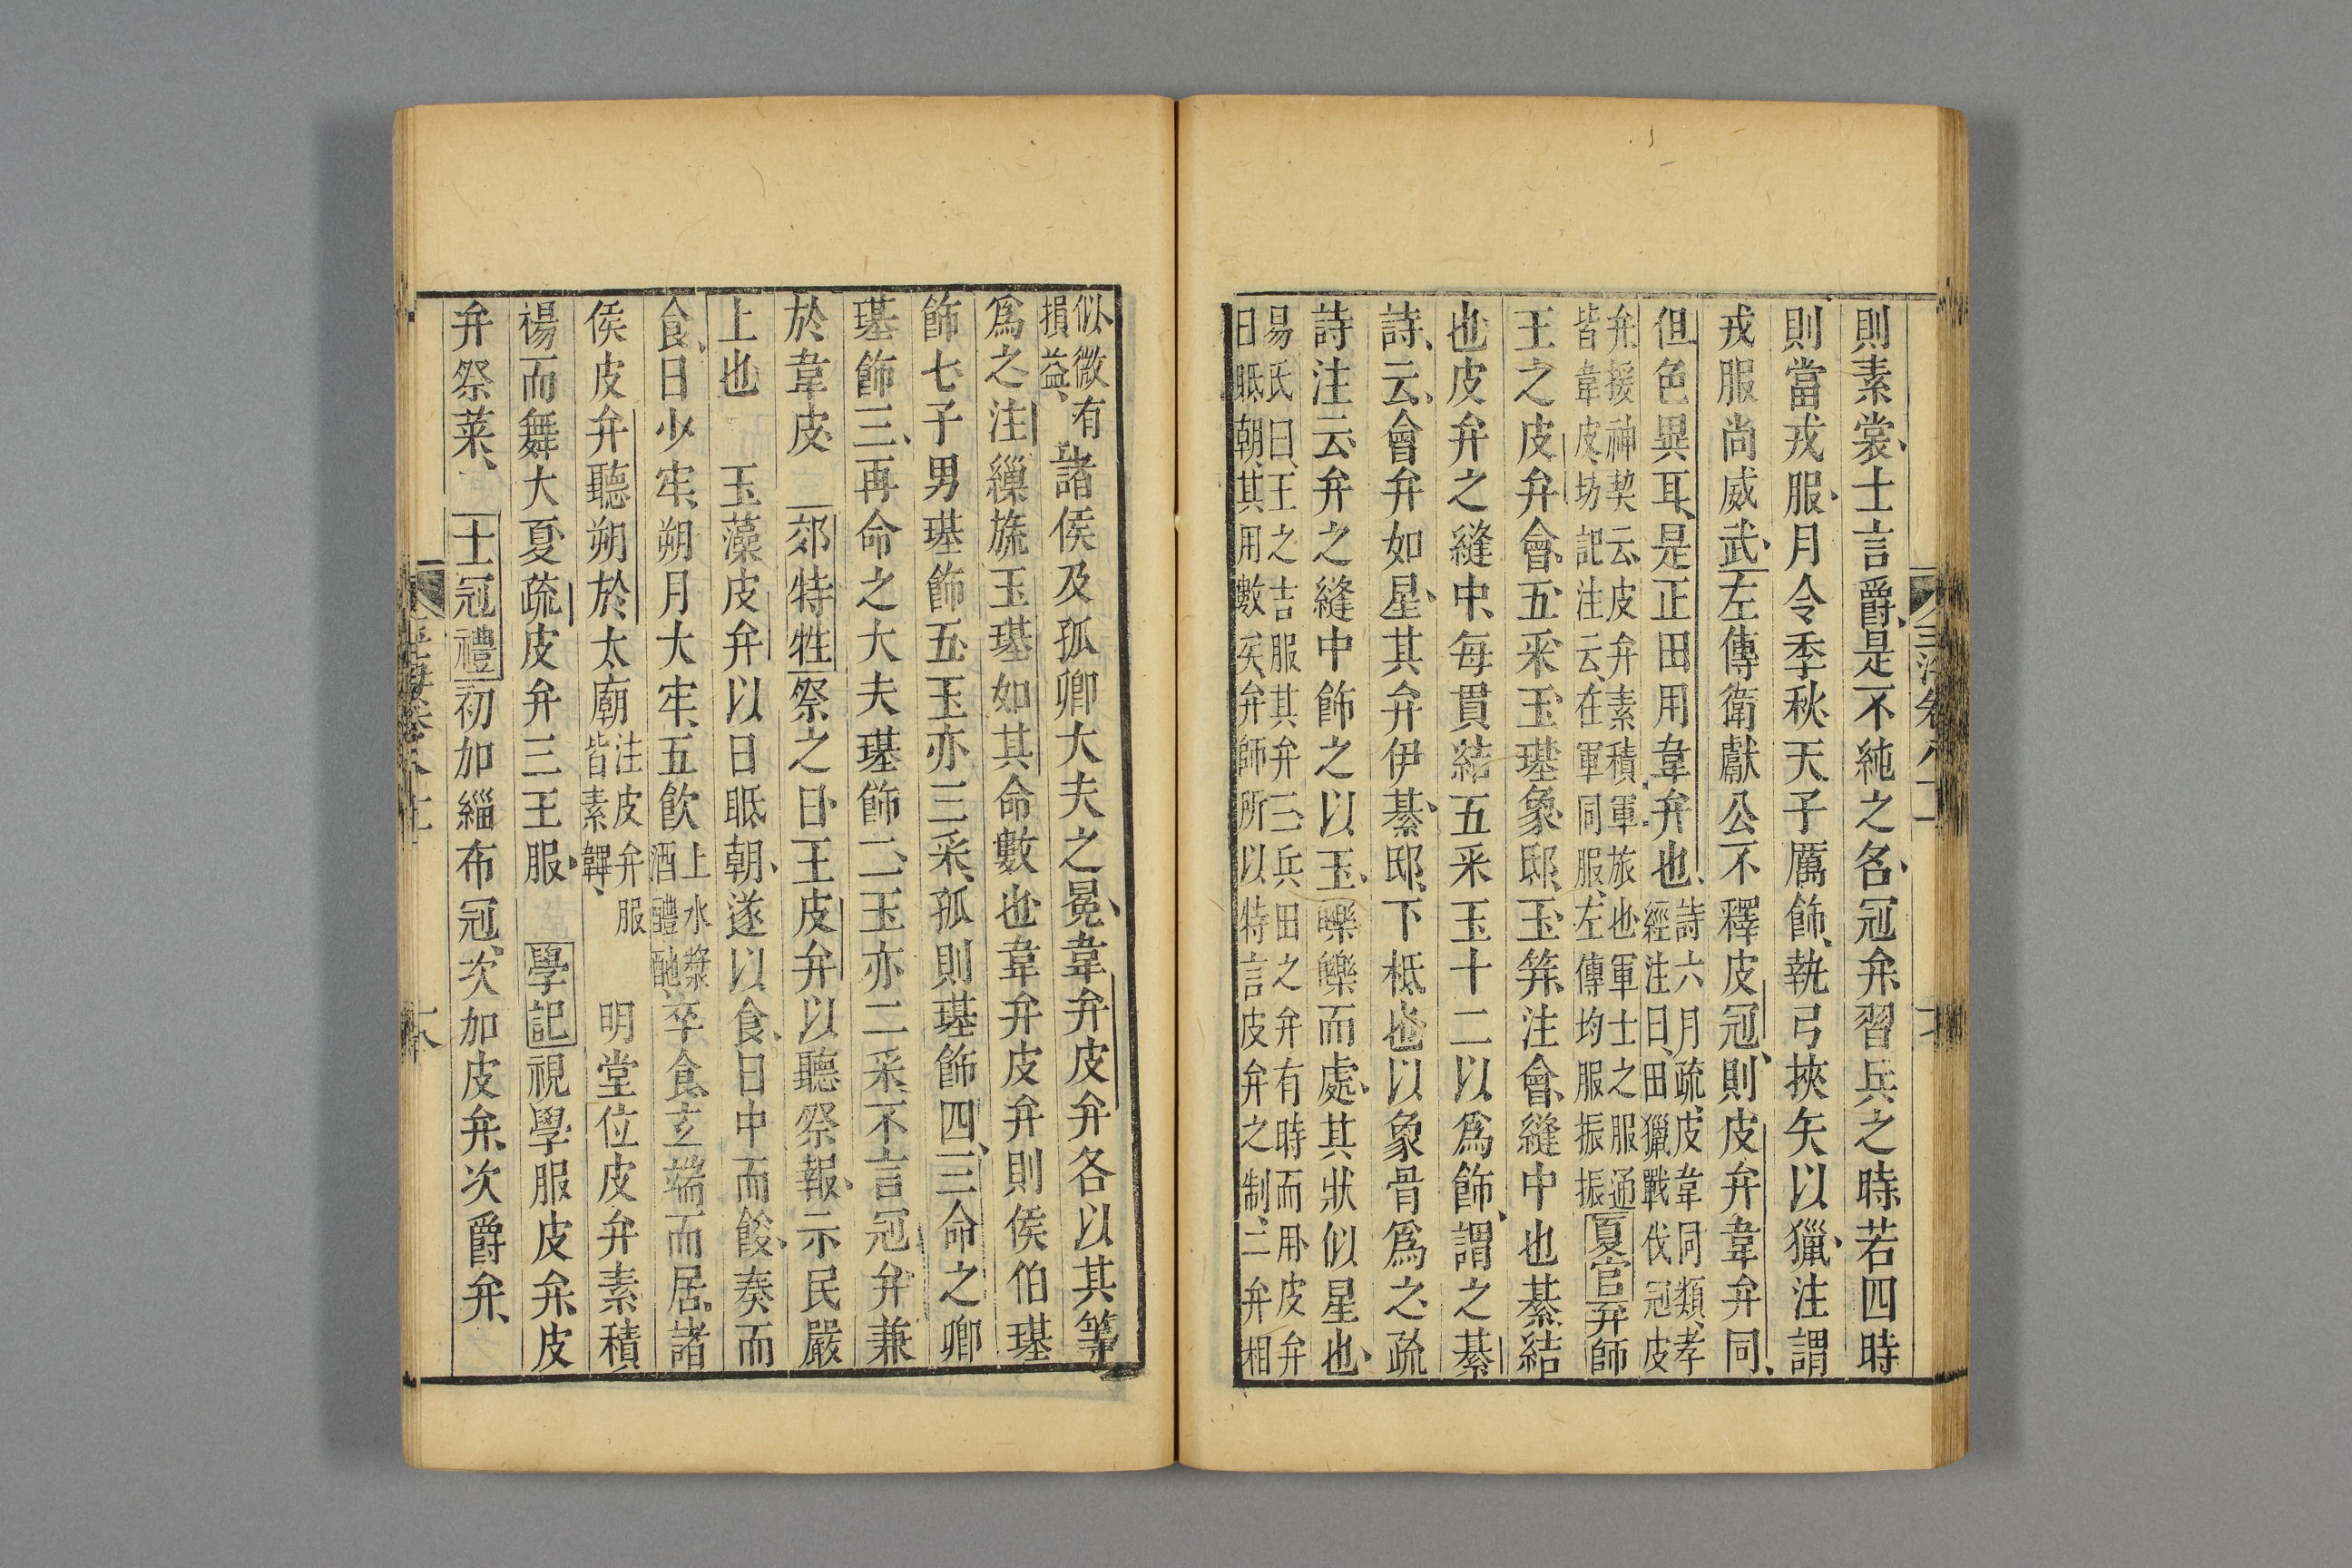 則素裳、士言爵、是不純之名、冠弁、習兵之時、若四時
則當戎服、月令季秋、天子厲飾、執弓挾矢以獵、注謂
戎服尚威武、左傳衛獻公不釋皮冠、則皮弁韋弁同、
但色異耳、是正田用韋弁也、詩六月疏、皮韋同類、孝
經注曰、田獵戰伐冠皮
弁、援神契云、皮弁素積、軍旅也、軍士之服通
皆韋皮、坊記注云、在軍同服、左傳均服振振夏官弁師
王之皮弁、會五采玉璂、象邸、玉笄、注會、縫中也、綦、結
也、皮弁之縫中、每貫結五采玉十二以爲飾、謂之綦、
詩、云、會弁如星、其弁伊綦、邸、下柢也、以象骨爲之、疏
詩注云、弁之縫中飾之以玉、皪皪而處、其狀似星也、
易氏曰、王之吉服其弁三、兵田之弁有時而用、皮弁
日眡朝、其用數矣、弁師所以特言皮弁之制、二弁相
似、微有
損益、諸侯及孤卿大夫之冕、韋弁皮弁各以其等
爲之、注繅斿玉璂如其命數也、韋弁皮弁則侯伯璂
飾七、子男璂飾五、玉亦三采、孤則璂飾四、三命之卿
璂飾三、再命之大夫璂飾二、玉亦二采、不言冠弁兼
於韋皮 郊特牲祭之日、王皮弁以聽祭報、示民嚴
上也 玉藻皮弁以日眡朝、遂以食、日中而餕、奏而
食、日少牢、朔月大牢、五飲上水漿
酒醴酏、卒食、玄端而居、諸
侯皮弁聽朔於太廟注皮弁服
皆素韠、 明堂位皮弁素積
裼而舞大夏疏皮弁三王服、 學記視學服皮弁、皮
弁祭菜、 士冠禮初加緇布冠、次加皮弁、次爵弁、